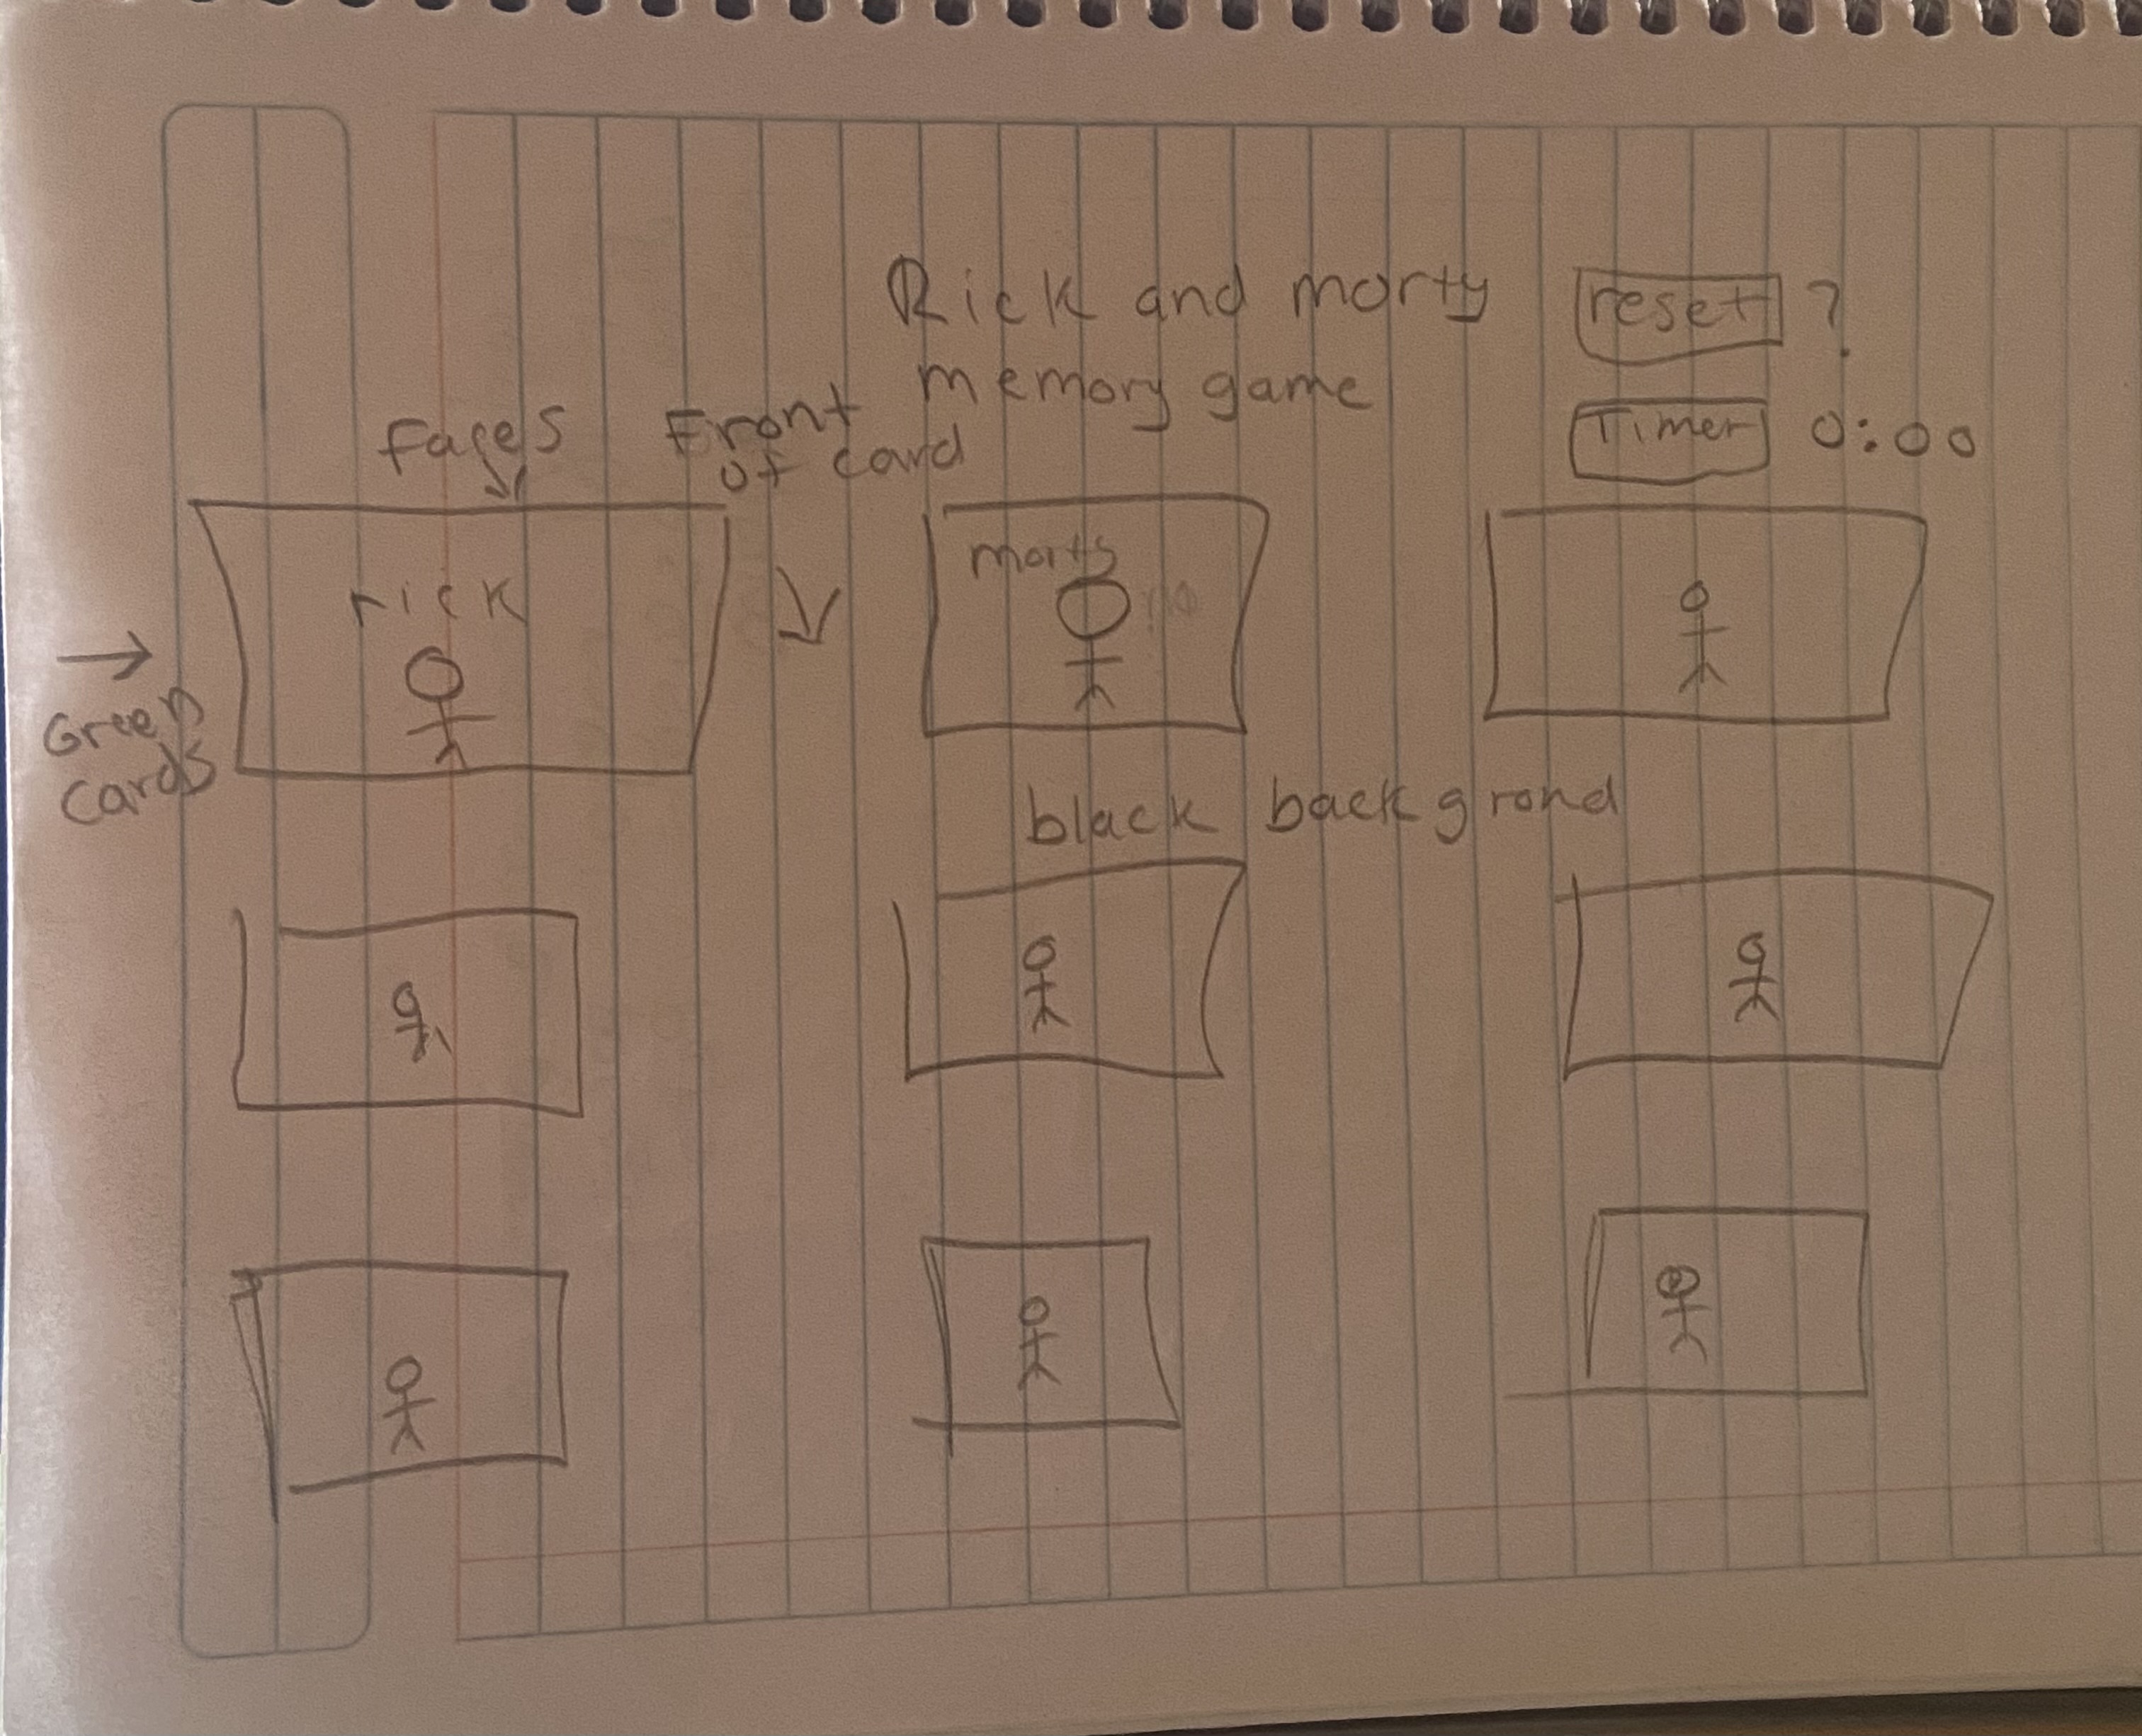 Rick and morty
memory game
reset ?
Timer 0:00
faces
Front
of card
rick
morty
Green
Cards
black backgrond